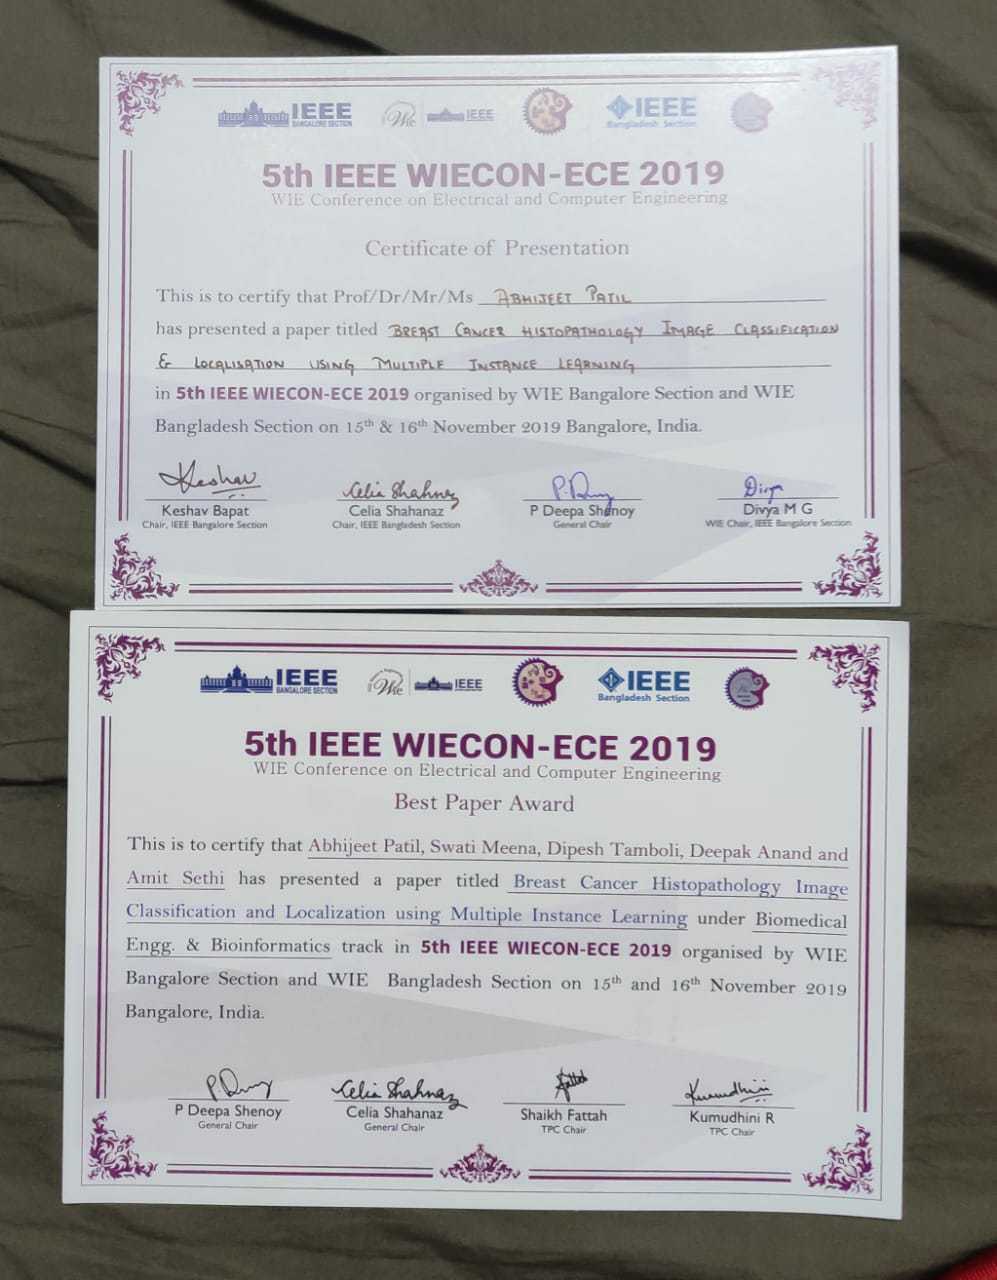 IEEE
BANGALORE SECTION
Wie
IEEE
IEEE
Bangladesh Section
5th IEEE WIECON-ECE 2019
WIE Conference on Electrical and Computer Engineering
Certificate of Presentation
This is to certify that Prof/Dr/Mr/Ms ABHIJEET PATIL
has presented a paper titled BREAST CANCER HISTOPATHOLOGY IMAGE CLASSIFICATION
& LOCALISATION USING MULTIPLE INSTANCE LEARNING
in 5th IEEE WIECON-ECE 2019 organised by WIE Bangalore Section and WIE
Bangladesh Section on 15th & 16th November 2019 Bangalore, India.
Keshav
Celia Shahnaz
P. Deny
Divya
Keshav Bapat
Celia Shahanaz
P Deepa Shenoy
Divya M G
Chair, IEEE Bangalore Section
Chair, IEEE Bangladesh Section
General Chair
WIE Chair, IEEE Bangalore Section
IEEE
BANGALORE SECTION
Wie
IEEE
IEEE
Bangladesh Section
5th IEEE WIECON-ECE 2019
WIE Conference on Electrical and Computer Engineering
Best Paper Award
This is to certify that Abhijeet Patil, Swati Meena, Dipesh Tamboli, Deepak Anand and
Amit Sethi has presented a paper titled Breast Cancer Histopathology Image
Classification and Localization using Multiple Instance Learning under Biomedical
Engg. & Bioinformatics track in 5th IEEE WIECON-ECE 2019 organised by WIE
Bangalore Section and WIE Bangladesh Section on 15th and 16th November 2019
Bangalore, India.
Celia Shahnaz
Kumudhini
P Deepa Shenoy
Celia Shahanaz
Shaikh Fattah
Kumudhini R
General Chair
General Chair
TPC Chair
TPC Chair